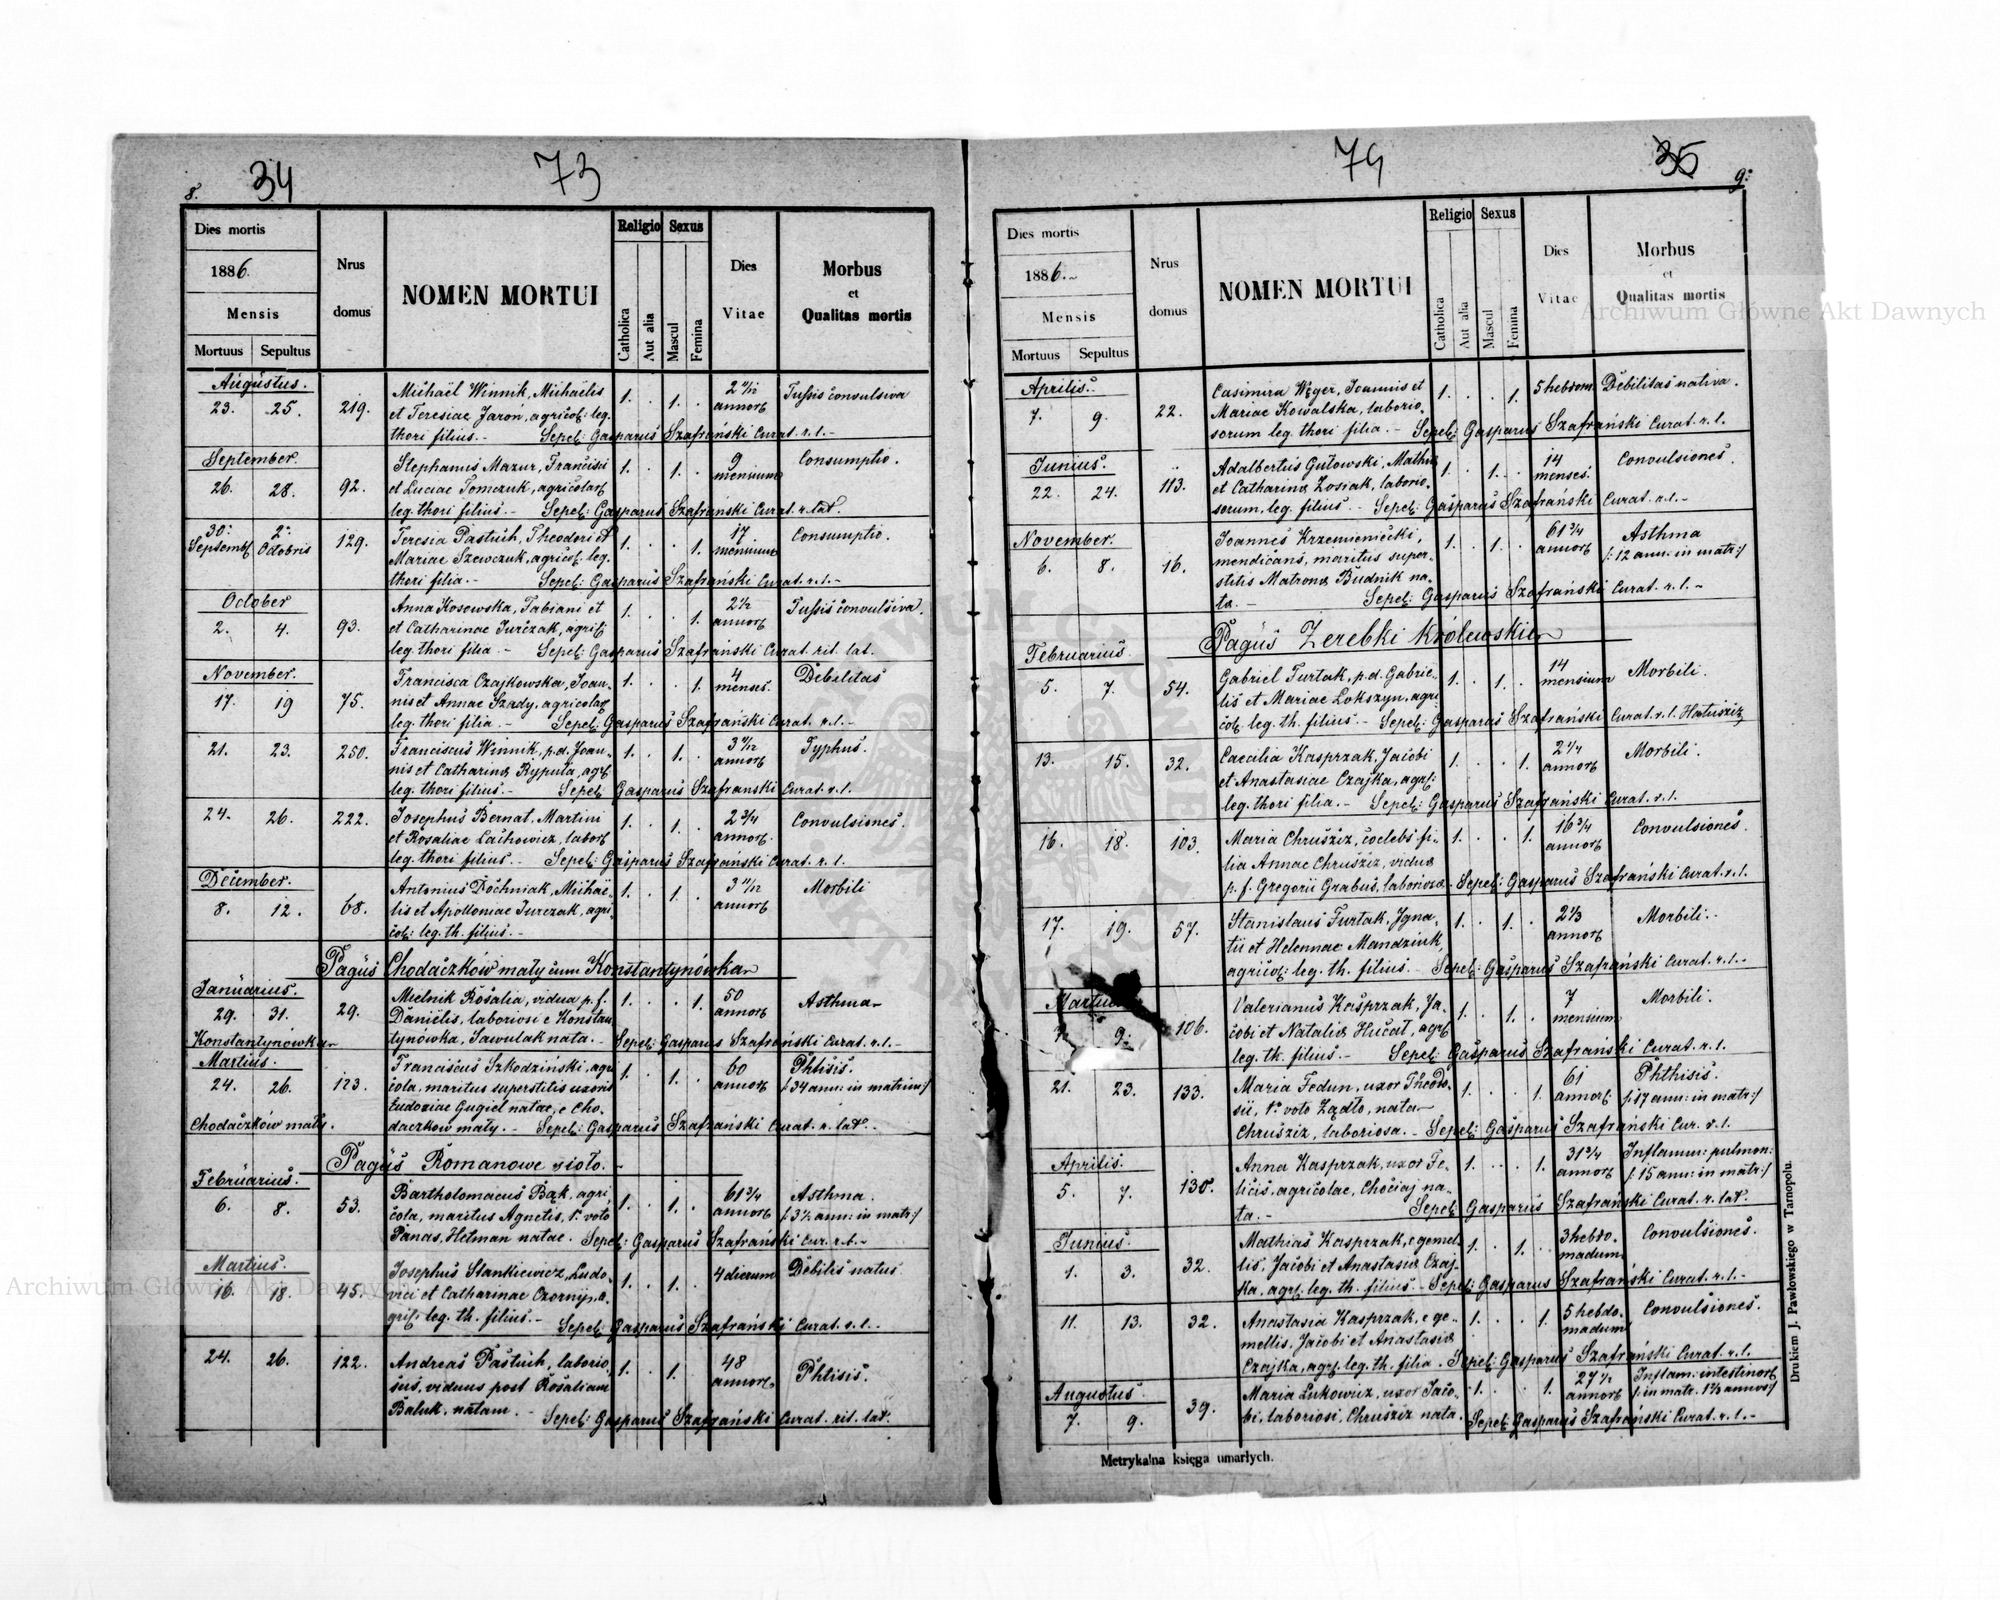 34
73
8.
Dies mortis
1886.
Mensis
Mortuus Sepultus
Nrus
domus
NOMEN MORTUI
Religio
Catholica
Aut alia
Sexus
Mascul
Femina
Dies
Vitae
Morbus
et
Qualitas mortis
Augustus.
23. 25. 219. Michaël Winnik, Michaëlis 1. . 1. . 2 11/12 annorb Tussis convulsiva
et Teresiae Jaroń, agricol: leg.
thori filius.- Sepel: Gasparus Szafrański Curat. r. l.-
September.
26. 28. 92. Stephanus Mazur, Francisci 1. . 1. . 9 mensium Consumptio.
et Luciae Tomczuk, agricolar
leg. thori filius.- Sepel: Gasparus Szafrański Curat. r. lat.
30: Septemb 2: Octobris 129. Teresia Pastuch, Theodori et 1. . . 1. 17 mensium Consumptio.
Mariae Szewczuk, agricol. leg.
thori filia.- Sepel: Gasparus Szafrański Curat. r. l.-
October
2. 4. 93. Anna Kosewska, Fabiani et 1. . . 1. 2 1/2 annorb Tussis convulsiva.
et Catharinae Jurczak, agric:
leg. thori filia.- Sepel: Gasparus Szafrański Curat. rit. lat.
November.
17. 19 75. Francisca Czajkowska, Joan- 1. . . 1. 4 menses. Debilitas
nis et Annae Szady, agricolar
leg. thori filia.- Sepel: Gasparus Szafrański Curat. r. l.-
21. 23. 250. Franciscus Winnik, p.d. Joan- 1. . 1. . 3 11/12 annorb Typhus.
nis et Catharina Ryputa, agr.
leg. thori filius.- Sepel: Gasparus Szafranski Curat. r. l.
24. 26. 222. Josephus Bernat, Martini 1. . 1. . 2 3/4 annorb. Convulsiones.
et Rosaliae Lachowicz, labor
leg. thori filius.- Sepel: Gasparus Szafrański Curat. r. l.
December.
8. 12. 68. Antonius Dochniak, Michaë- 1. . 1. . 3 11/12 annorb Morbili
lis et Apolloniae Jurczak, agri
col: leg. th. filius.-
Pagus Chodaczków mały cum Konstantynówka
Januarius.
29. 31. 29. Mielnik Rosalia, vidua p. f. 1. . . 1. 50 annorb Asthma
Daniëlis, laboriosi e Konstan
Konstantynówka tynówka, Sawulak nata.- Sepel: Gasparus Szafrański Curat. r. l.-
Martius.
24. 26. 123. Franciscus Szkodziński, agri 1. . 1. . 60 annorb Phtisis.
cola, maritus superstitis uxoris /:34 ann: in matrim:/
Eudoxiae Gugiel natae, e Cho-
Chodaczków mały. daczków mały.- Sepel: Gasparus Szafrański Curat. r. lat.-
Pagus Romanowe sioło.-
Februarius.
6. 8. 53. Bartholomaeus Bąk, agri- 1. . 1. . 61 3/4 annorb Asthma.
cola, maritus Agnetis, 1° voto /:3 1/2 ann: in matr:/
Panas, Hetman natae. Sepel: Gasparus Szafrański Cur. r. l.-
Martius.
16. 18. 45. Josephus Stankiewicz, Ludo- 1. . 1. . 4 dierum Debilis natus
vici et Catharinae Czornij, a-
gric: leg. th. filius.- Sepel: Gasparus Szafrański Curat. r. l.-
24. 26. 122. Andreas Pastuch, laborio- 1. . 1. . 48 annorb Phtisis.
sus, viduus post Rosaliam
Baluk, natam.- Sepel: Gasparus Szafrański Curat. rit. lat.
74
35
9:
Dies mortis
1886.~
Mensis
Mortuus Sepultus
Nrus
domus
NOMEN MORTUI
Religio
Catholica
Aut alia
Sexus
Mascul
Femina
Dies
Vitae
Morbus
et
Qualitas mortis
Aprilis.
7. 9. 22. Casimira Węger, Joannis et 1. . . 1. 5 hebdom. Debilitas nativa.
Mariae Kowalska, laborio-
sorum leg. thori filia.- Sepel: Gasparus Szafrański Curat. r. l.
Junius.
22. 24. 113. Adalbertus Gutowski, Mathia 1. . 1. . 14 menses. Convulsiones.
et Catharina Zosiak, laborio-
sorum, leg. filius.- Sepel: Gasparus Szafrański Curat. r. l.-
November.
6. 8. 16. Joannes Krzemieniecki, 1. . 1. . 61 3/4 annorb Asthma
mendicans, maritus super- /:12 ann: in matr:/
stitis Matrona Budnik na-
ta.- Sepel: Gasparus Szafrański Curat. r. l.-
Pagus Zerebki Królewskie
Februarius.
5. 7. 54. Gabriel Furtak, p.d. Gabrie- 1. . 1. . 14 mensium Morbili.
lis et Mariae Lokszyn, agri
col. leg. th. filius.- Sepel: Gasparus Szafrański Curat. r. l.
13. 15. 32. Caecilia Kasprzak, Jacobi 1. . . 1. 2 1/4 annorb Morbili.
et Anastasiae Czajka, agr:
leg. thori filia.- Sepel: Gasparus Szafrański Curat. r. l.
16. 18. 103. Maria Chruściz, coelebs fi- 1. . . 1. 16 3/4 annorb Convulsiones.
lia Annae Chruściz, vidua
p. f. Gregorii Grabus, laboriosa. Sepel: Gasparus Szafrański Curat. r. l.
17. 19. 57. Stanislaus Furtak, Igna- 1. . 1. . 2 1/3 annorb Morbili.
tii et Helennae Mandziuk,
agricol: leg. th. filius.- Sepel: Gasparus Szafrański Curat. r. l.-
Martius
9. 106. Valerianus Kasprzak, Ja- 1. . 1. . 7 mensium Morbili.
cobi et Natalia Hucał, agr.
leg. th. filius.- Sepel: Gasparus Szafrański Curat. r. l.
21. 23. 133. Maria Fedun, uxor Theodo- 1. . . 1. 61 annorb. Phthisis.
sii, 1° voto Żądło, nata /:17 ann: in matr:/
Chruściz, laboriosa.- Sepel: Gasparus Szafrański Cur. r. l.
Aprilis.
5. 7. 130. Anna Kasprzak, uxor Fe- 1. . . 1. 31 3/4 annorb Inflamm: pulmon:
licis, agricolae, Chociaj na- /:15 ann: in matr:/
ta.- Sepel: Gasparus Szafrański Curat. r. lat.
Junius.
1. 3. 32. Mathias Kasprzak, e gemel- 1. . 1. . 3 hebdo- madum Convulsiones.
lis, Jacobi et Anastasia Czaj-
ka, agr. leg. th. filius.- Sepel: Gasparus Szafrański Curat. r. l.-
11. 13. 32. Anastasia Kasprzak, e ge- 1. . . 1. 5 hebdo- madum Convulsiones.
mellis, Jacobi et Anastasia
Czajka, agr. leg. th. filia. Sepel: Gasparus Szafrański Curat. r. l.
Augustus.
7. 9. 39. Maria Lukowicz, uxor Jaco- 1. . . 1. 27 1/2 annorb Inflam: intestinorb
bi, laboriosi, Chruściz nata. /:in matr. 1 2/3 annor:/ Sepel: Gasparus Szafrański Curat. r. l.-
Metrykalna księga umarłych.
Drukiem J. Pawłowskiego w Tarnopolu.
Archiwum Główne Akt Dawnych
Archiwum Główne Akt Dawnych